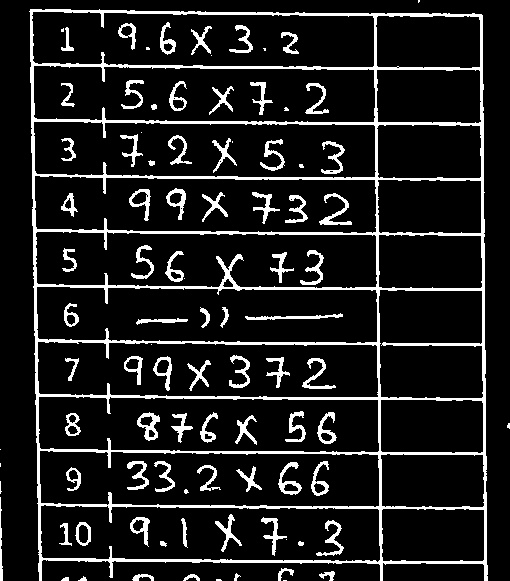 1 9.6 X 3.2
2 5.6 X 7.2
3 7.2 X 5.3
4 99 X 732
5 56 X 73
6 — ,, —
7 99 X 372
8 876 X 56
9 33.2 X 66
10 9.1 X 7.3